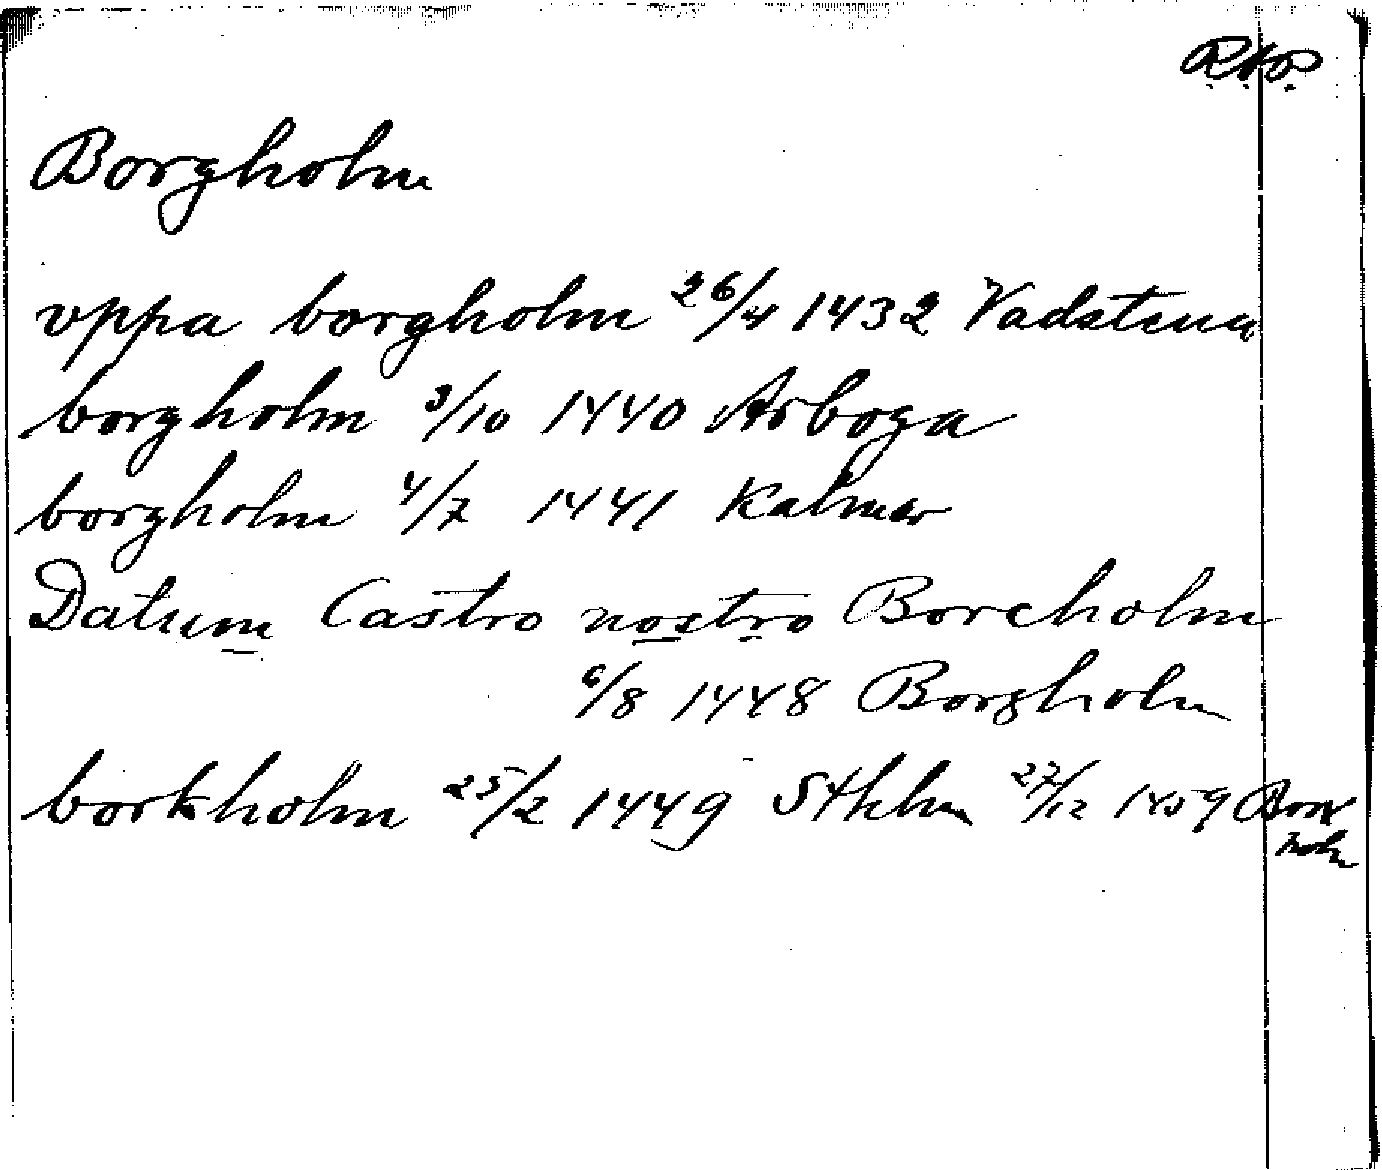 R.A.P.
Borgholm
vppa borgholm 26/4 1432 Vadstena
borgholm 3/10 1440 Arboga
borgholm 4/7 1441 Kalmar
Datum Castro nostro Borcholm
6/8 1448 Borgholm
borkholm 25/2 1449 Sthlm 27/12 1459 Bork
holm